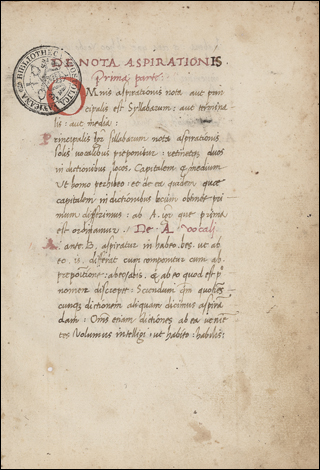 DE NOTA ASPIRATIONIS
Prima pars.
OMnis aspirationis nota aut prin
cipalis est Syllabarum: aut termina
lis: aut media:
Principalis syllabarum nota aspirationis
solis vocalibus preponitur: retinetque duos
in dictionibus locos. Capitalem & medium
Ut homo perhibeo: et de ea quidem quae
capitalem in dictionibus locum obtinet pri
mum disseramus: ab .A. que prima
est ordiamur. De .A. vocali
A. ante .B. aspiratur in habeo. bes. ut ab
eo. is. differat cum componitur cum ab
prepositione: abeo abis. & ab eo quod est
nomen discrepet: Sciendum
cunque dictionem aliquam dicimus aspira
dam: Omnes etiam dictiones ab ea venien
tes Volumus intelligi: ut habito: habilis: